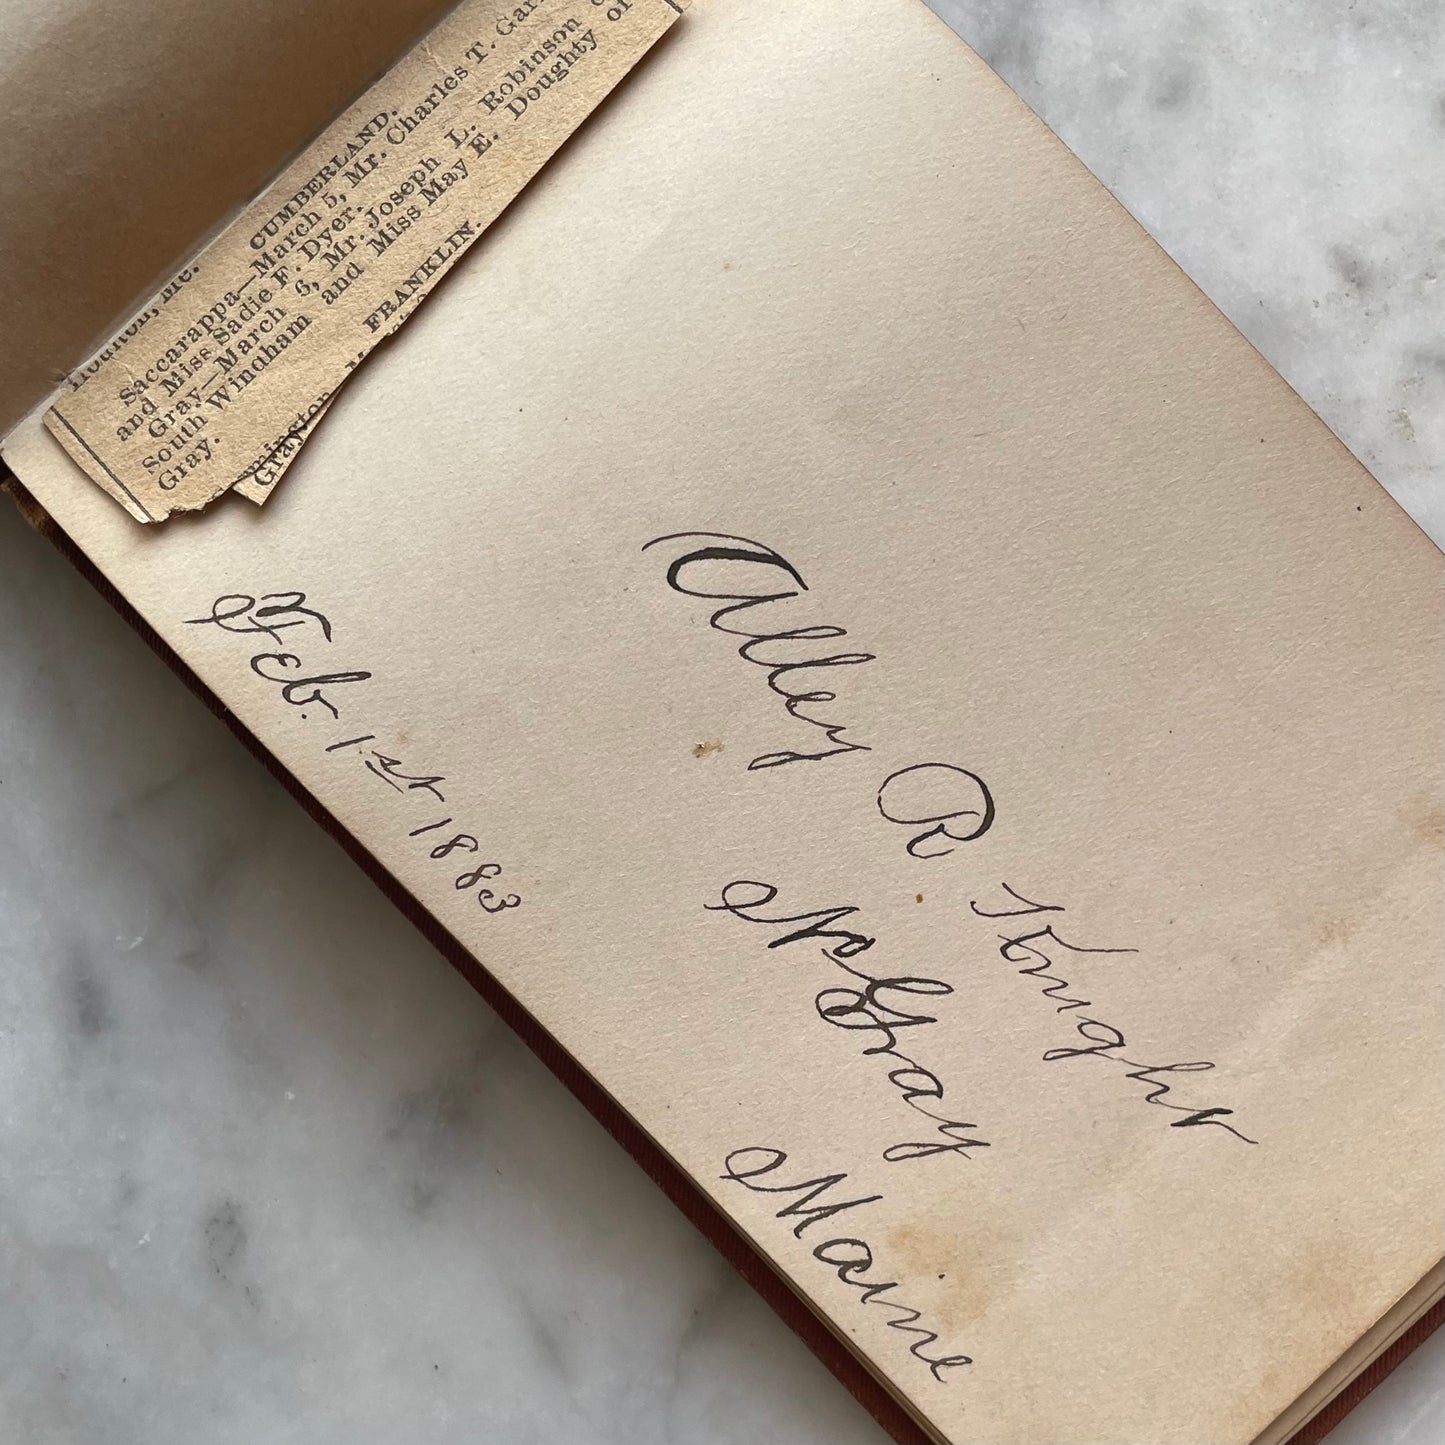 Houlton, Me.
CUMBERLAND.
Saccarappa—March 5, Mr. Charles T. Gar
and Miss Sadie F. Dyer.
Gray—March 6, Mr. Joseph L. Robinson
South Windham and Miss May E. Doughty of
Gray.
FRANKLIN.
Grayton
Feb. 1st 1883
Alley R Knight
No Gray
Maine